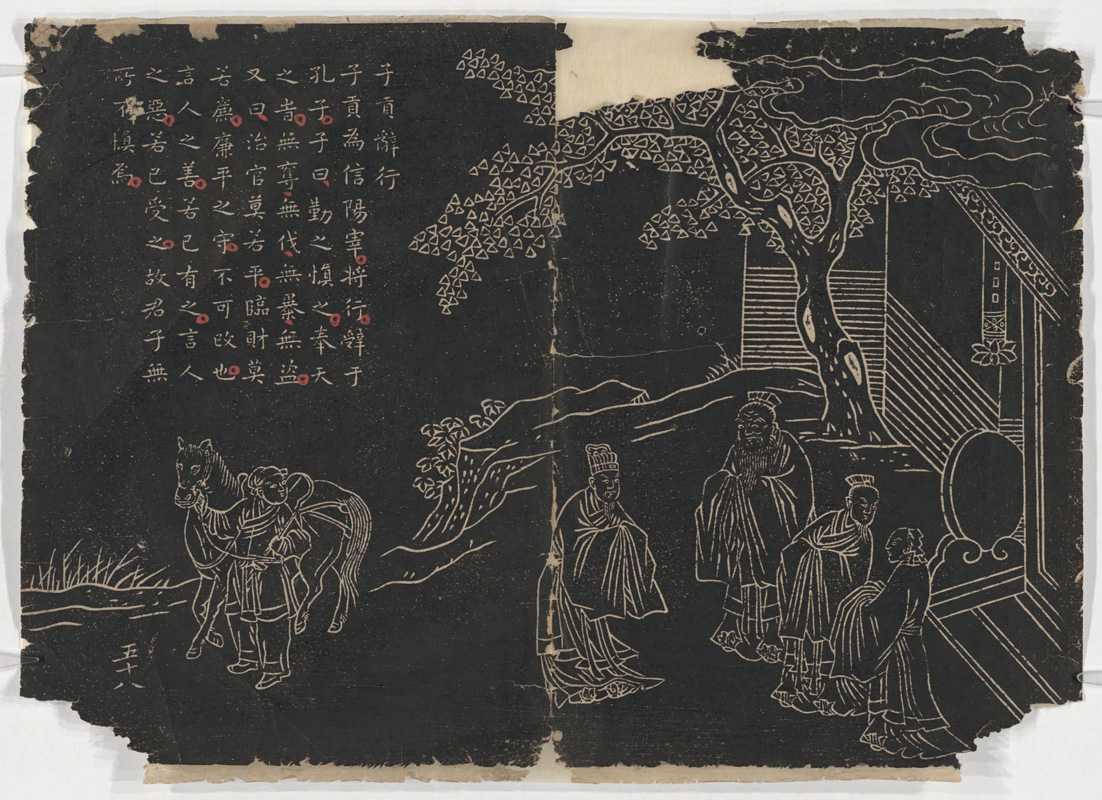 子貢辭行
子貢為信陽宰将行辭于
孔子子曰勤之慎之奉天
之旹無奪無伐無暴無盗
又曰治官莫若平臨財莫
若廉廉平之守不可改也
言人之善若已有之言人
之惡若已受之故君子無
所不慎焉
五十八